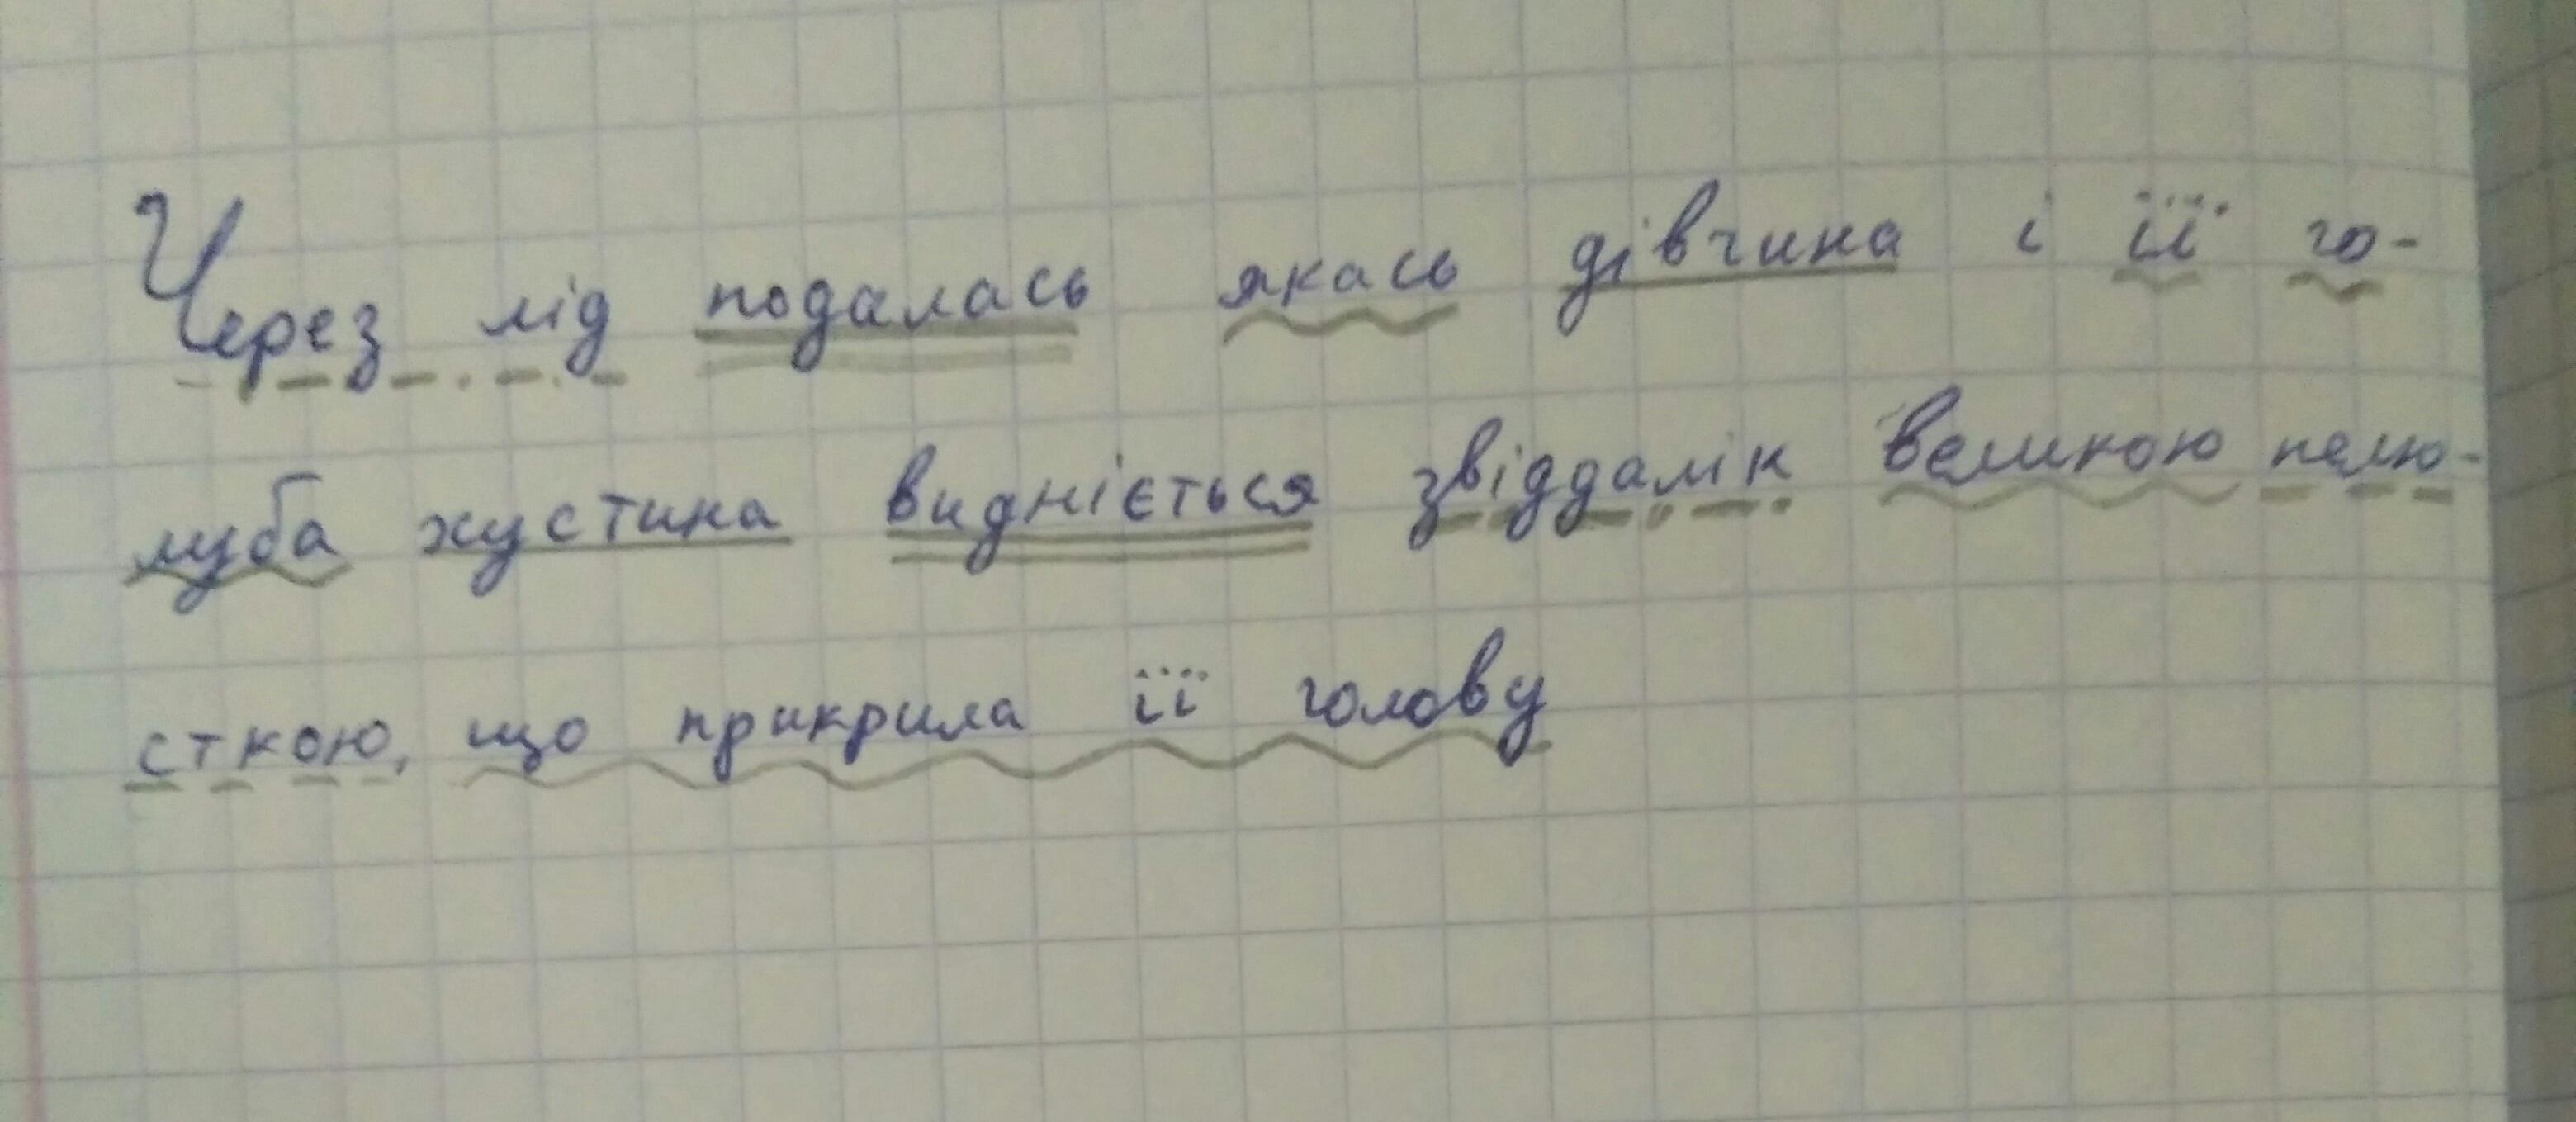 Через лід подалась якась дівчина і її го-
луба хустина видніється звіддалік великою пелю-
сткою, що прикрила її голову